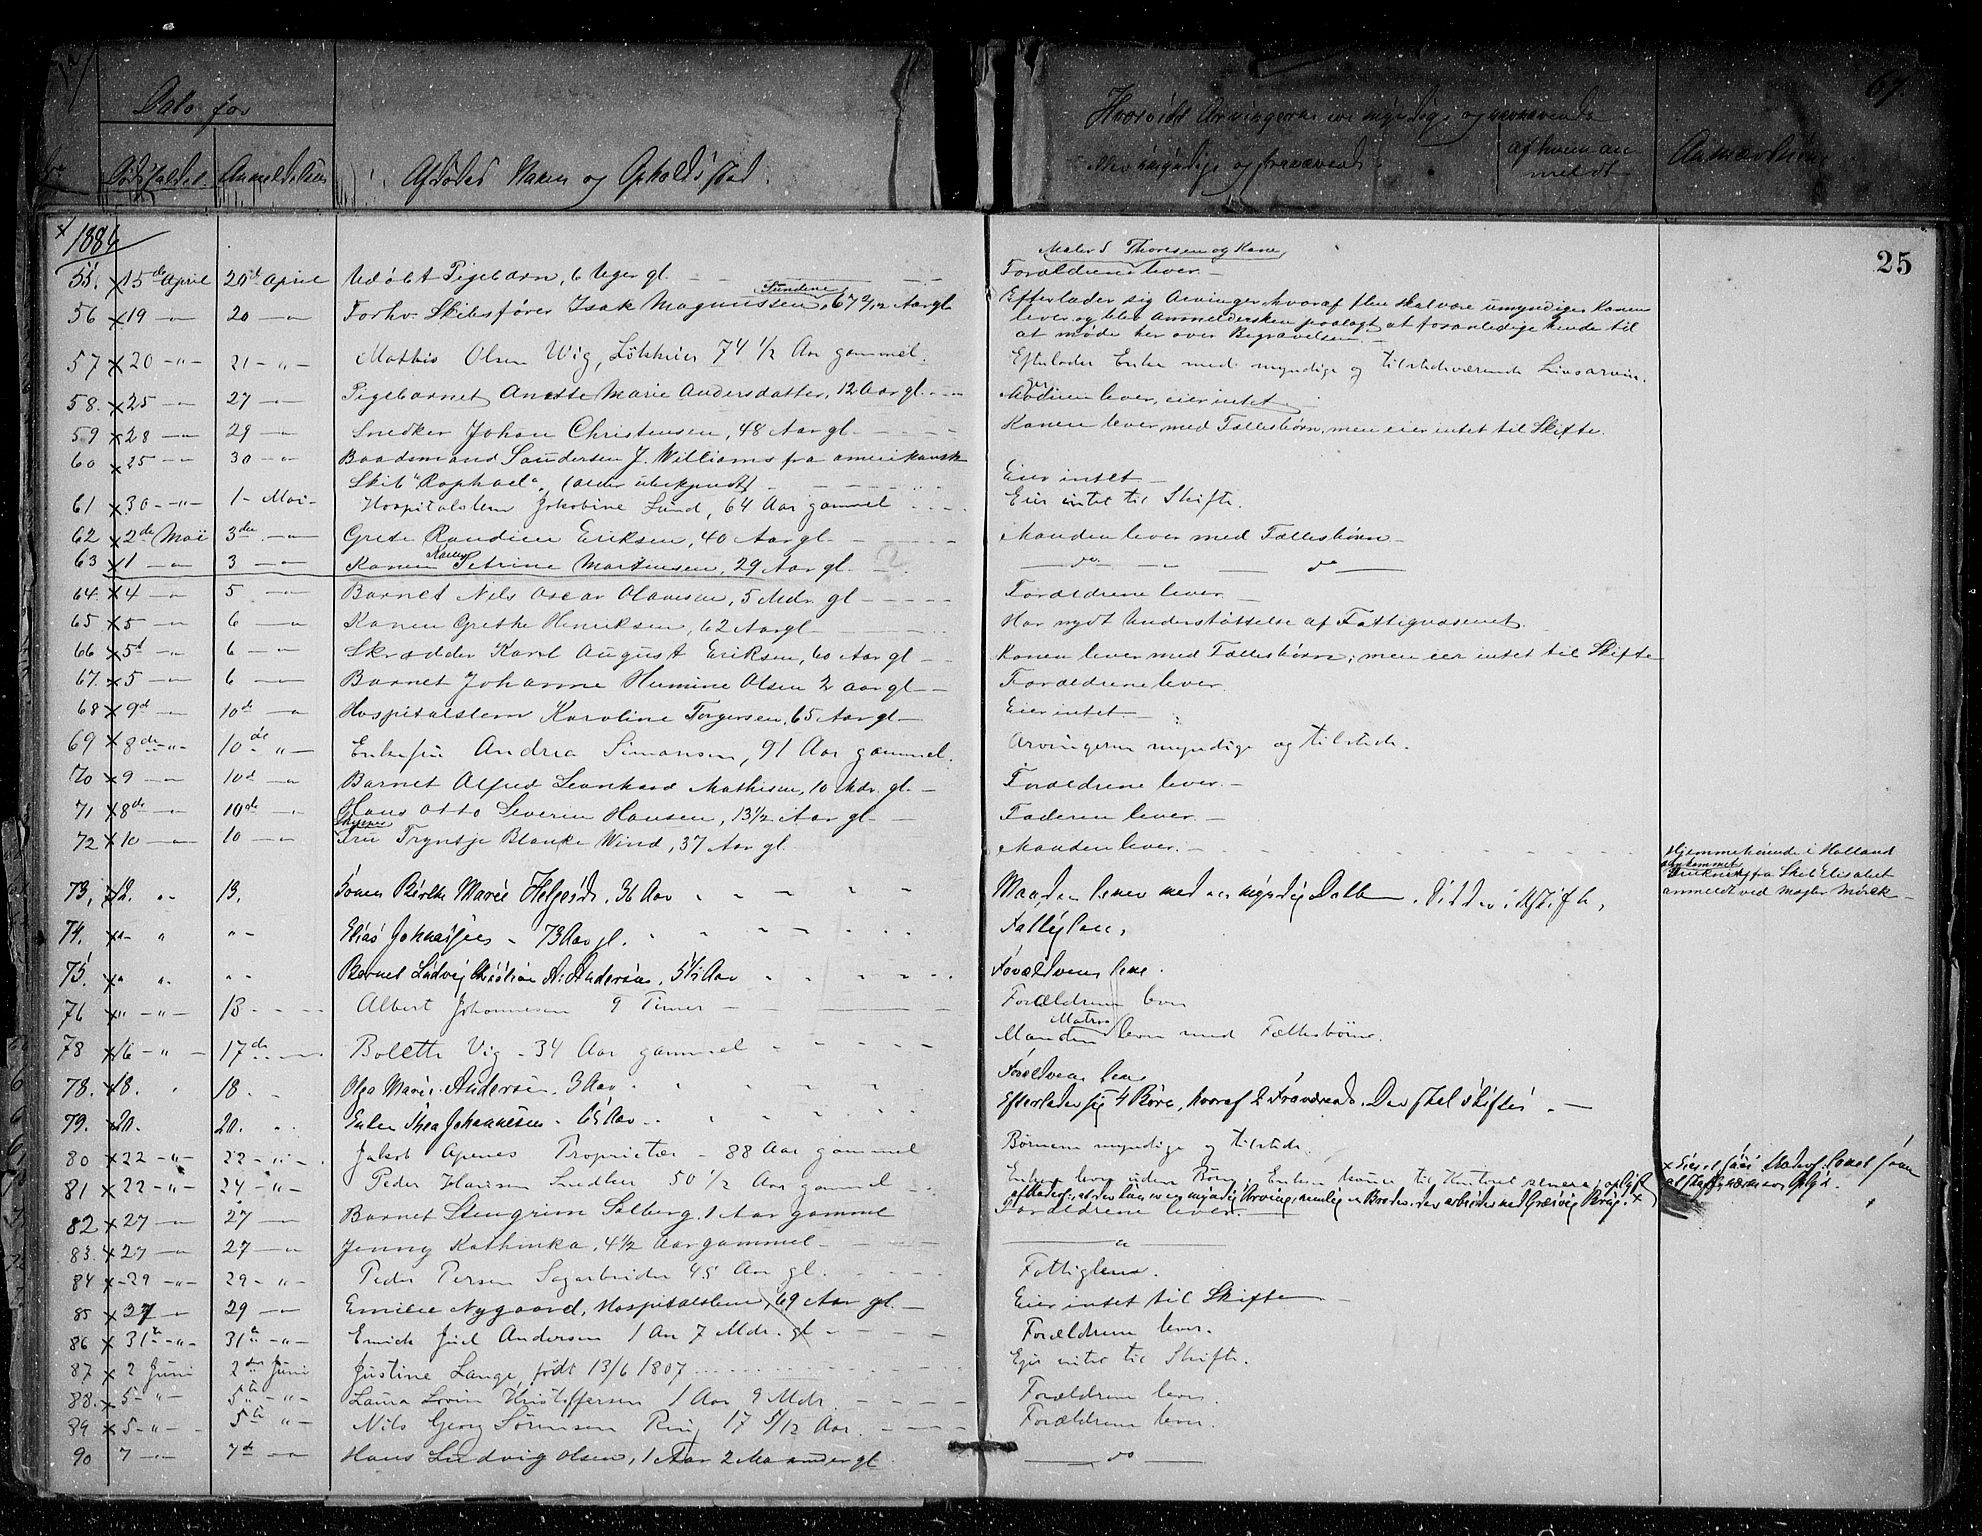 Dato for
Dødsfaldet. Anmeldelsen
Afdødes Navn og Opholdssted.
Hvorvidt Arvingerne ere myndige og nærværende
eller umyndige og fraværende
af hvem an
meldt
Anmærkning
67.
25
1884
Maler S Thoresen og Kone
55. 15de April 20de April Udøbt Pigebarn, 6 Uger gl. Forældrene lever.
56 19 20 Forhv. Skibsfører Isak Magnussen, 67 Aar gl
Efterlader sig Arvinger, hvoraf flere skal være umyndige; Konen
lever og blev Anmeldersken paalagt at foranledige hende til
at møde her over Begravelsen.
57 20 21 Mathis Olsen Wig, Løkkeier 74 1/2 Aar gammel. Efterlader Enke med myndige og tilstedeværende Livsarvin
ger
58. 25 27 Pigebarnet Anette Marie Andersdatter, 12 Aar gl. Moderen lever, eier intet
59 28 29 Snedker Johan Christensen, 48 Aar gl. Konen lever med Fællesbørn, men eier intet til Skifte.
60 25 30 Baadsmand Saudersen J. Williams fra amerikansk
Skib "Raphael", (alder ubekjendt) Eier intet
61 30 1 Mai Hospitalslem Jakobine Lund, 64 Aar gammel Eier intet til Skifte.
62 2de Mai 3die Grete Randine Eriksen, 40 Aar gl. Manden lever med Fællesbørn
63 1 3 Konen Petrine Mortensen, 29 Aar gl. do do
64. 4 5 Barnet Nils Oscar Olavesen, 5 Mdr. gl Forældrene lever
65 5 6 Konen Grethe Henriksen, 62 Aar gl. Har nydt Understøttelse af Fattigvæsenet.
66 5d 6 Skrædder Karl August Eriksen, 60 Aar gl Konen lever med Fællesbørn; men eier intet til Skifte
67. 5 6 Barnet Johanne Hermine Olsen 2 aar gl. Forældrene lever.
68 9d 10de Hospitalslem Karoline Torgersen, 65 Aar gl Eier intet.
69 8de 10de Enkefru Andrea Simonsen, 91 Aar gammel. Arvingerne myndige og tilstede.
70 9 10d Barnet Alfred Leonhard Mathisen, 10 Mdr. gl. Forældrene lever.
71 8de 10de Hans Otto Severin Hansen, 13 1/2 Aar gl Faderen lever.
72 10 10 Fru Tryntje Blauke Wind, 37 Aar gl Manden lever.
Hjemmehørende i Holland
fra Skib Elisabet
anmeldt ved Mægler Mørck
73. 12. 13. Konen Birthe Marie Helgesd. 36 Aar Manden lever med en myndig Datter.
74. Elias Johnassen 73 Aar gl. Fattiglem.
75. Barnet Ludvig Kristian A. Andersen, 5 1/2 Aar Forældrene leve.
76 13 Albert Johannesen 9 Timer Forældrene lever
78 16 17de Bolette Vig 34 Aar gammel Manden lever med Fællesbørn.
78. 18. 18 Olga Marie Andersen 3 Aar Forældrene leve
79. 20. 20. Enken Thea Johannesen 65 Aar Efterlader sig 4 Børn, hvoraf 2 Fraværende. Der skal skiftes.
80 22 22 Jakob Apenes Proprietær 88 Aar gammel Børnene myndige og tilstede.
81 22 24 Peder Hansen Snedker 50 1/2 Aar gammel
Enken lever uden Børn, Enken kommer til Kontoret senere;
82 27 27 Barnet Stengrim Solberg 1 Aar gammel Forældrene lever.
83. 27 27 Jenny Kathinka, 4 1/2 Aar gammel
84 29 29 Peder Persen Sagarbeider 45 Aar gl. Fattiglem.
85 27 29 Emilie Nygaard, Hospitalslem, 69 Aar gl. Eier intet til Skifte
86 31te 31te Emich Juel Andersen 1 Aar 7 Mdr. gl Forældrene lever.
87 2 Juni 2den Juni Justine Lange, født 13/6 1807 Eier intet til Skifte.
88. 5 5te Laura Lovise Kristoffersen 1 Aar 9 Mdr. Forældrene lever
89 5 5te Nils Georg Sørensen Ring 17 5/12 Aar. Forældrene lever.
90 7 7de Hans Ludvig Olsen, 1 Aar 2 Maaneder gl do